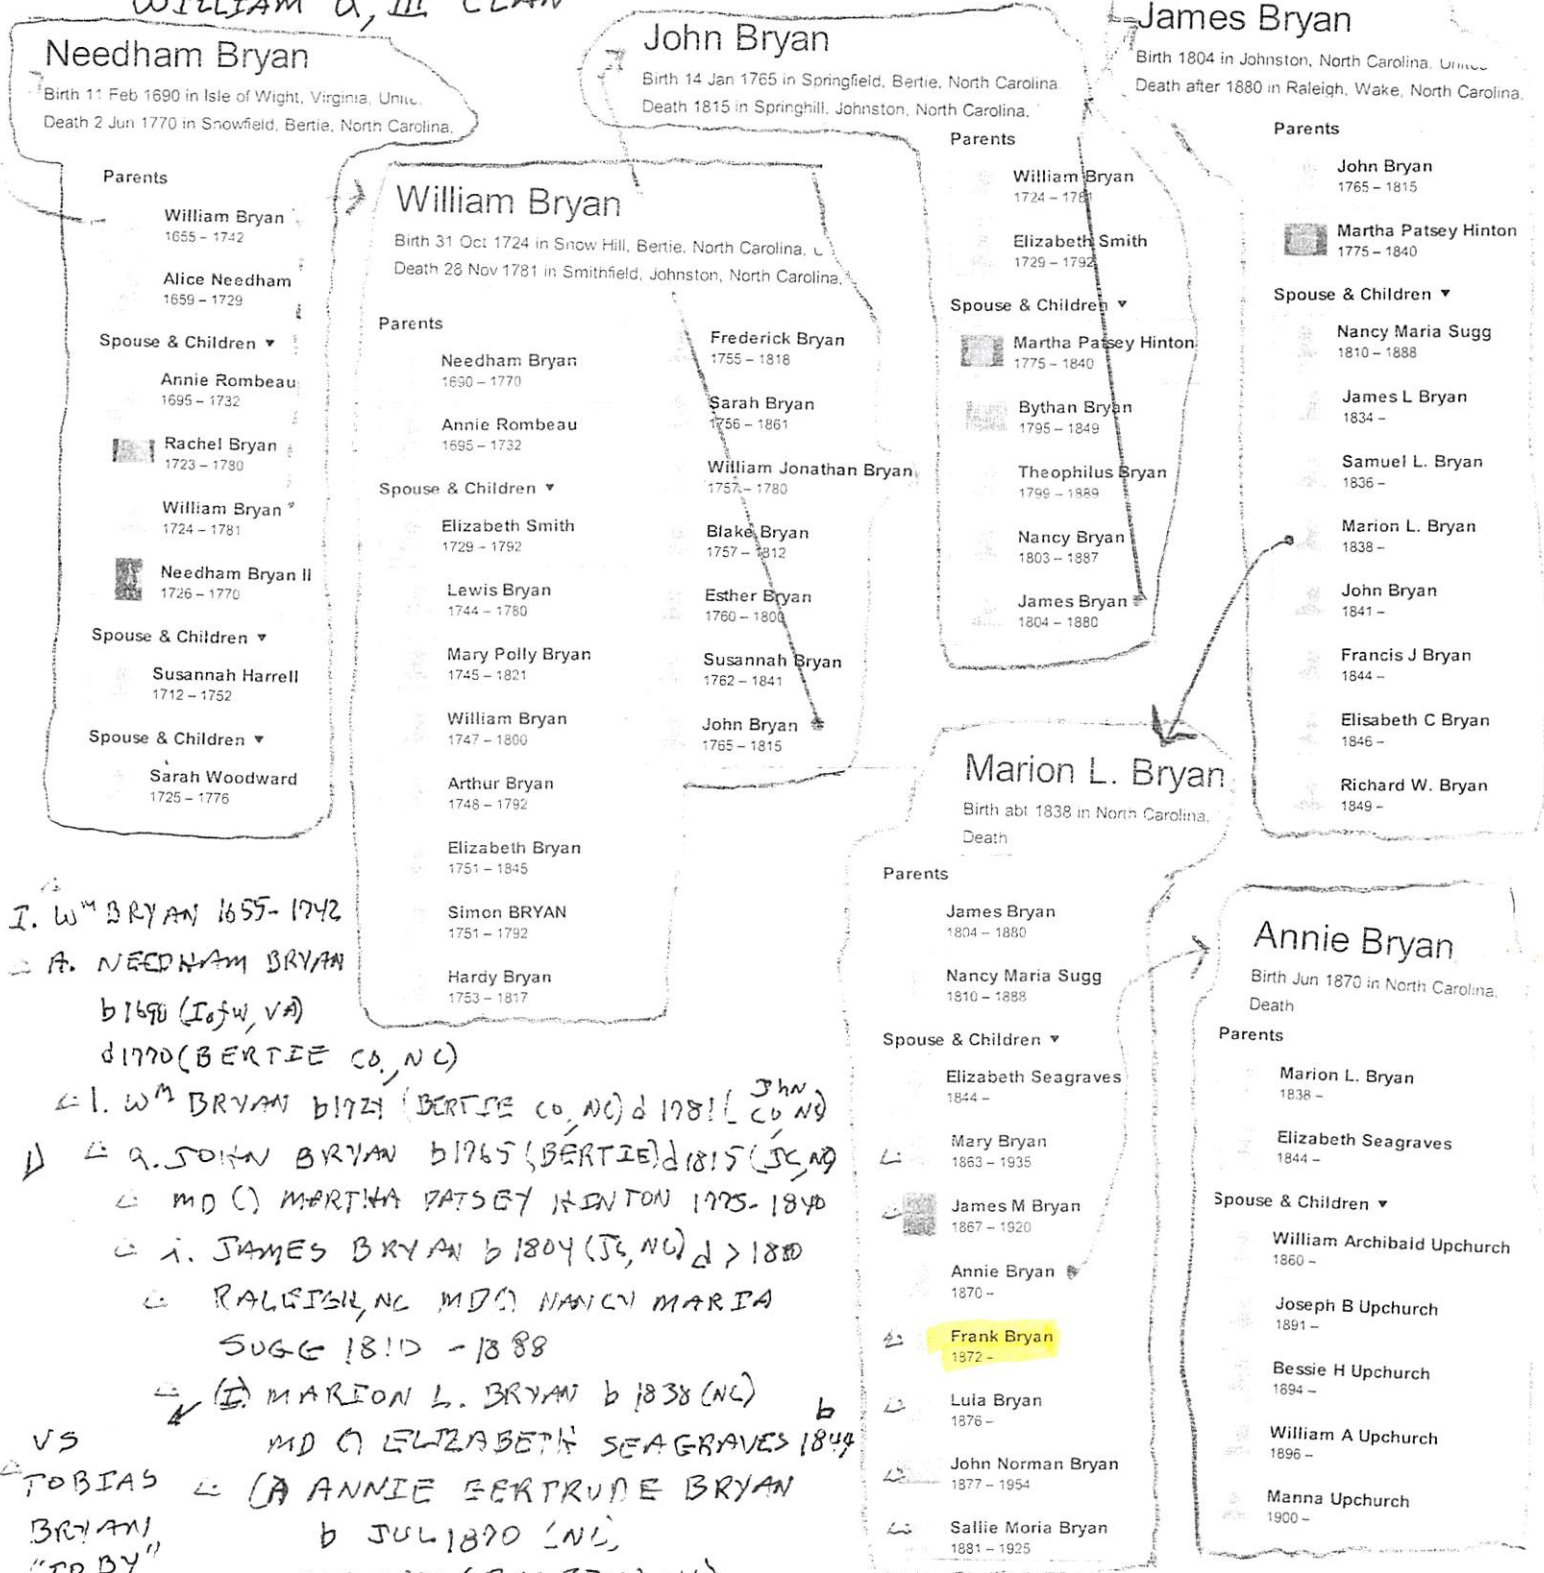 WILLIAM U, III CLAN
Needham Bryan
Birth 11 Feb 1690 in Isle of Wight, Virginia,
Death 2 Jun 1770 in Snowfield, Bertie, North Carolina,
Parents
William Bryan
1655 – 1742
Alice Needham
1659 – 1729
Spouse & Children ▼
Annie Rombeau
1695 – 1732
Rachel Bryan
1723 – 1780
William Bryan
1724 – 1781
Needham Bryan II
1726 – 1770
Spouse & Children ▼
Susannah Harrell
1712 – 1752
Spouse & Children ▼
Sarah Woodward
1725 – 1776
William Bryan
Birth 31 Oct 1724 in Snow Hill, Bertie, North Carolina,
Death 28 Nov 1781 in Smithfield, Johnston, North Carolina,
Parents
Needham Bryan
1690 – 1770
Annie Rombeau
1695 – 1732
Spouse & Children ▼
Elizabeth Smith
1729 – 1792
Lewis Bryan
1744 – 1780
Mary Polly Bryan
1745 – 1821
William Bryan
1747 – 1800
Arthur Bryan
1748 – 1792
Elizabeth Bryan
1751 – 1845
Simon BRYAN
1751 – 1792
Hardy Bryan
1753 – 1817
Frederick Bryan
1755 – 1818
Sarah Bryan
1756 – 1861
William Jonathan Bryan
1757 – 1780
Blake Bryan
1757 – 1812
Esther Bryan
1760 – 1800
Susannah Bryan
1762 – 1841
John Bryan
1765 – 1815
John Bryan
Birth 14 Jan 1765 in Springfield, Bertie, North Carolina
Death 1815 in Springhill, Johnston, North Carolina.
Parents
William Bryan
1724 – 1781
Elizabeth Smith
1729 – 1792
Spouse & Children ▼
Martha Patsey Hinton
1775 – 1840
Bythan Bryan
1795 – 1849
Theophilus Bryan
1799 – 1889
Nancy Bryan
1803 – 1887
James Bryan
1804 – 1880
James Bryan
Birth 1804 in Johnston, North Carolina,
Death after 1880 in Raleigh, Wake, North Carolina,
Parents
John Bryan
1765 – 1815
Martha Patsey Hinton
1775 – 1840
Spouse & Children ▼
Nancy Maria Sugg
1810 – 1888
James L Bryan
1834 –
Samuel L. Bryan
1836 –
Marion L. Bryan
1838 –
John Bryan
1841 –
Francis J Bryan
1844 –
Elisabeth C Bryan
1846 –
Richard W. Bryan
1849 –
Marion L. Bryan
Birth abt 1838 in North Carolina,
Death
Parents
James Bryan
1804 – 1880
Nancy Maria Sugg
1810 – 1888
Spouse & Children ▼
Elizabeth Seagraves
1844 –
Mary Bryan
1863 – 1935
James M Bryan
1867 – 1920
Annie Bryan
1870 –
Frank Bryan
1872 –
Lula Bryan
1876 –
John Norman Bryan
1877 – 1954
Sallie Moria Bryan
1881 – 1925
Annie Bryan
Birth Jun 1870 in North Carolina,
Death
Parents
Marion L. Bryan
1838 –
Elizabeth Seagraves
1844 –
Spouse & Children ▼
William Archibald Upchurch
1860 –
Joseph B Upchurch
1891 –
Bessie H Upchurch
1894 –
William A Upchurch
1896 –
Manna Upchurch
1900 –
I. Wᵐ BRYAN 1655-1742
A. NEEDHAM BRYAN
b1690 (I of W, VA)
d1770 (BERTIE CO., NC)
1. Wᵐ BRYAN b1724 (BERTIE CO, NC) d 1781 (JhN CO, NC)
a. JOHN BRYAN b1765 (BERTIE) d1815 (JC, NC)
MD () MARTHA PATSEY HINTON 1775-1840
i. JAMES BRYAN b 1804 (JC, NC) d >1880
RALEIGH, NC MD () NANCY MARIA
SUGG 1810 - 1888
(I) MARION L. BRYAN b 1838 (NC)
MD () ELIZABETH SEAGRAVES b 1844
(A) ANNIE GERTRUDE BRYAN
b JUL 1870 (NC)
VS
TOBIAS
BRYAN
"TOBY"